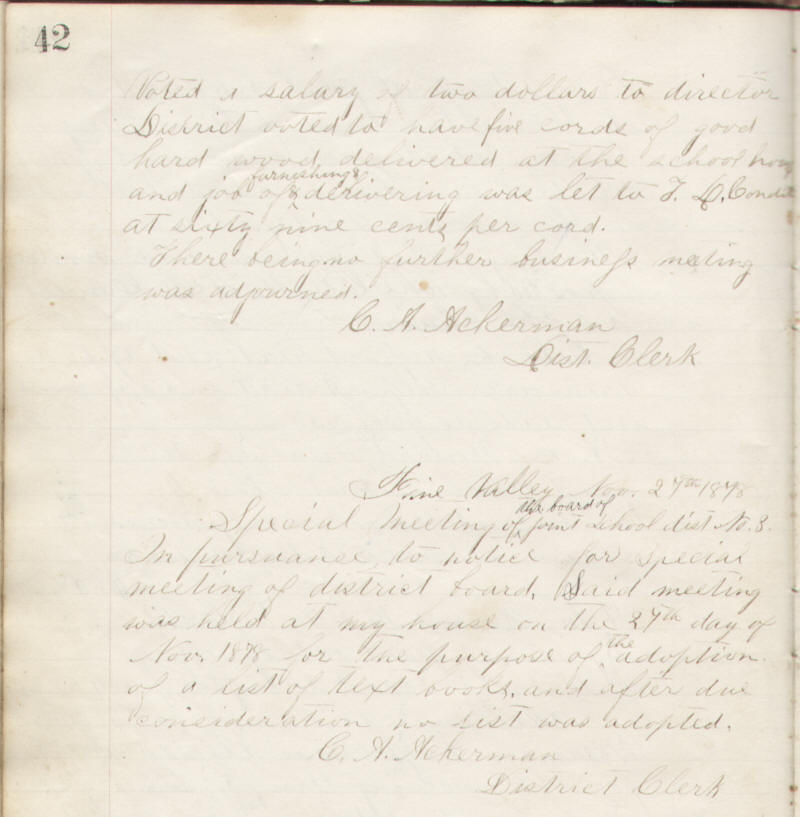 42
Voted a salary of two dollars to director
District voted to have five cords of good
hard wood delivered at the school hous
furnishing &
and job of delivering was let to F. D. Condit
at sixty nine cents per cord.
There being no further business meeting
was adjourned.
C. A. Ackerman
Dist. Clerk
Pine Valley Nov. 27th 1878
the board of
Special Meeting of joint School dist No. 3.
In pursuance to notice for special
meeting of district board. Said meeting
was held at my house on the 27th day of
Nov. 1878 for the purpose of the adoption
of a list of text books, and after due
consideration no list was adopted.
C. A. Ackerman
District Clerk